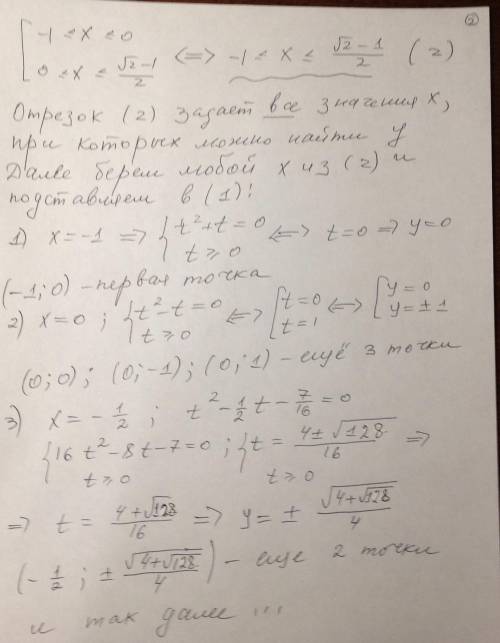 ②
[ -1 ≤ x ≤ 0
0 ≤ x ≤ (√2-1)/2 <=> -1 ≤ x ≤ (√2-1)/2 (2)
Отрезок (2) задает все значения x,
при которых можно найти y
Далее берем любой x из (2) и
подставляем в (1):
1) x=-1 => { t²+t=0 t≥0 <=> t=0 => y=0
(-1;0) - первая точка
2) x=0; { t²-t=0 t≥0 <=> [ t=0 t=1 <=> [ y=0 y=±1
(0;0); (0;-1); (0;1) - ещё 3 точки
3) x=-1/2; t²-1/2t-7/16=0
{ 16t²-8t-7=0 t≥0 ; { t=(4±√128)/16 t≥0 =>
=> t=(4+√128)/16 => y=±√(4+√128)/4
(-1/2; ±√(4+√128)/4) - еще 2 точки
и так далее ...